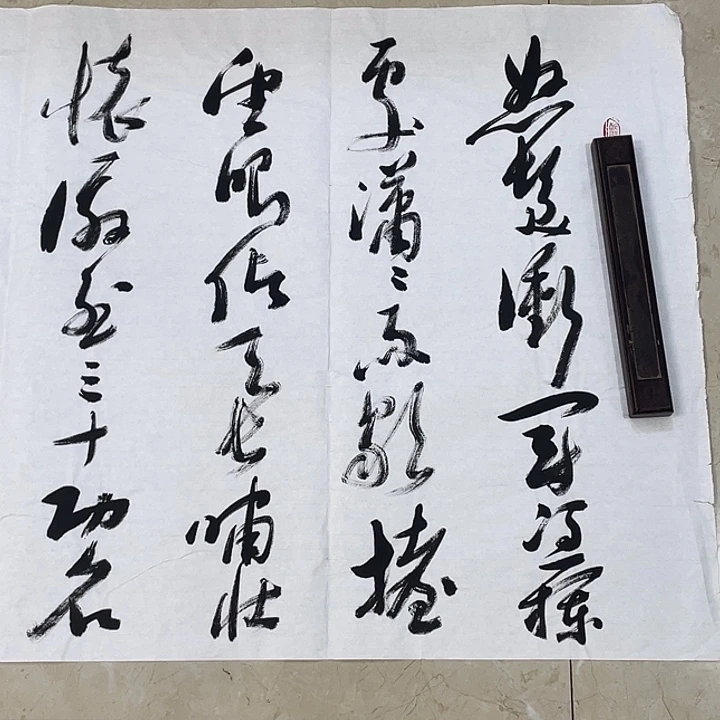 怒髮衝冠憑欄
處瀟々雨歇擡
望眼仰天長嘯壯
懷激烈三十功名